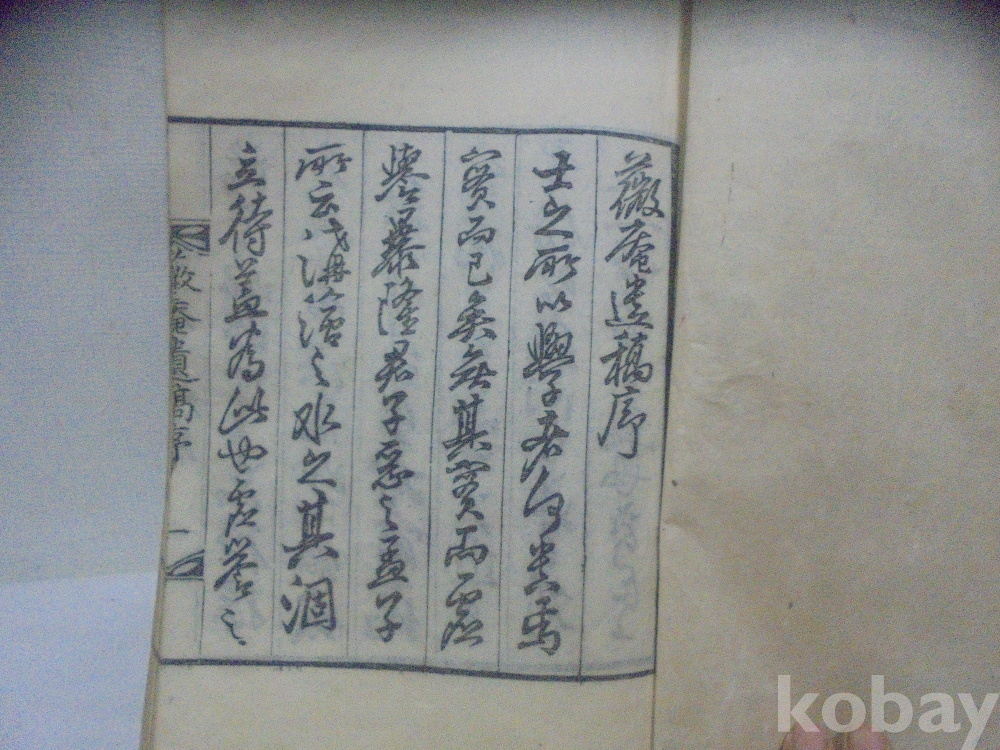 薇庵遺稿序
士之所以學者何貴焉
實而已矣無其實而虛
譽暴隆君子惡之孟子
所云溝澮之水之其涸
立待蓋爲此也虛譽之
薇庵遺稿序 一
kobay